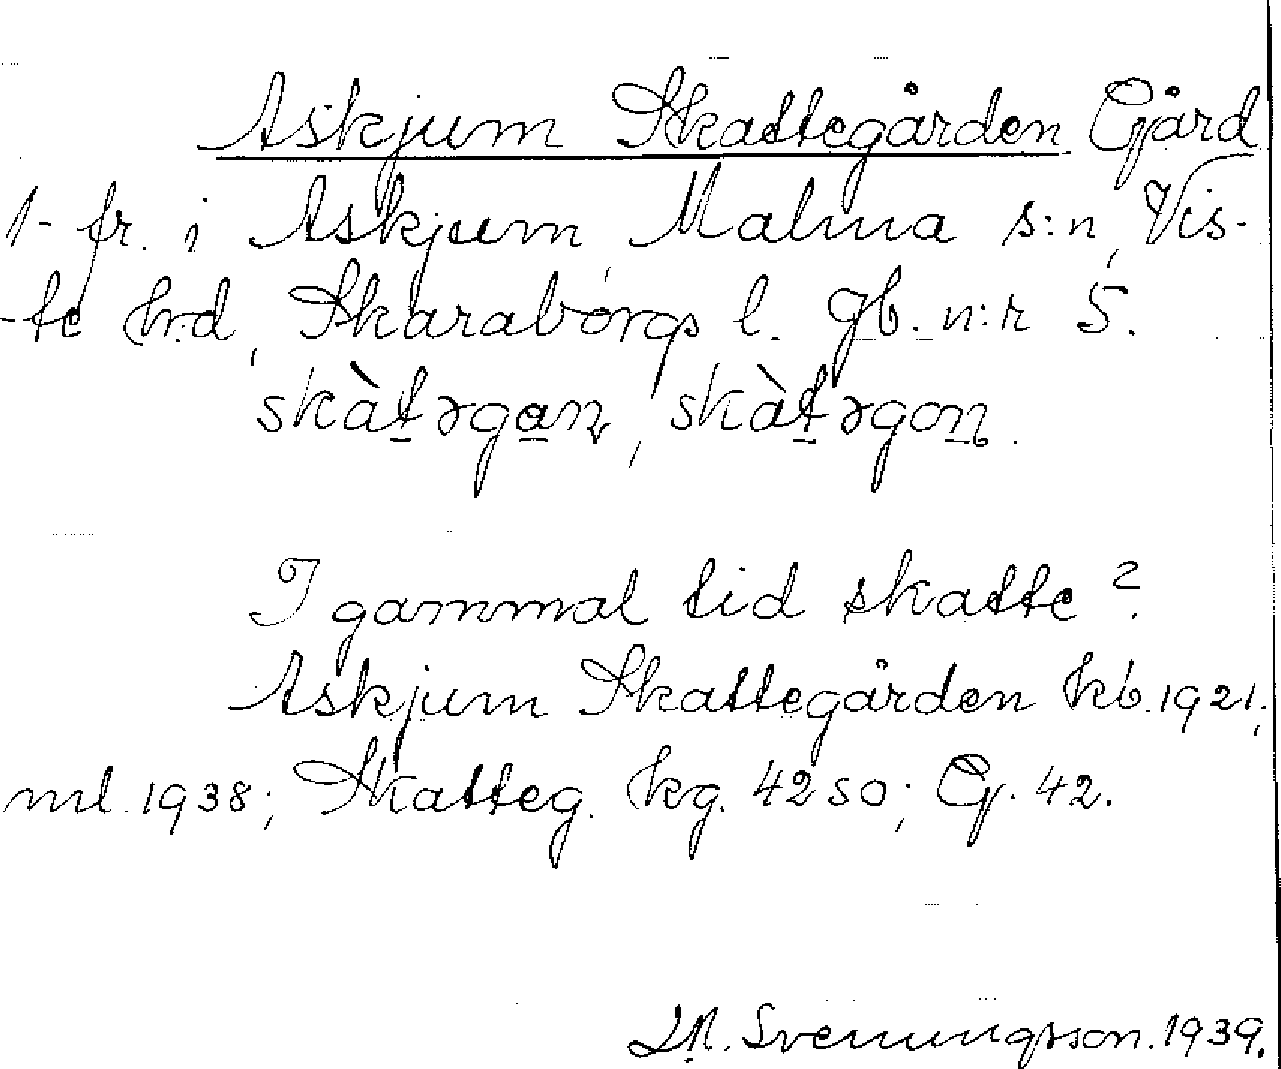 Askjum Skattegården Gård
1- fr. i Askjum, Malma s:n, Vis-
-te hrd, Skaraborgs l. Jb. n:r 5.
skàtəgan, skàtəgon.
I gammal tid skatte?
Askjum Skattegården kb. 1921,
ml. 1938; Skatteg. kg. 4250; G. 42.
Svenungsson. 1939.